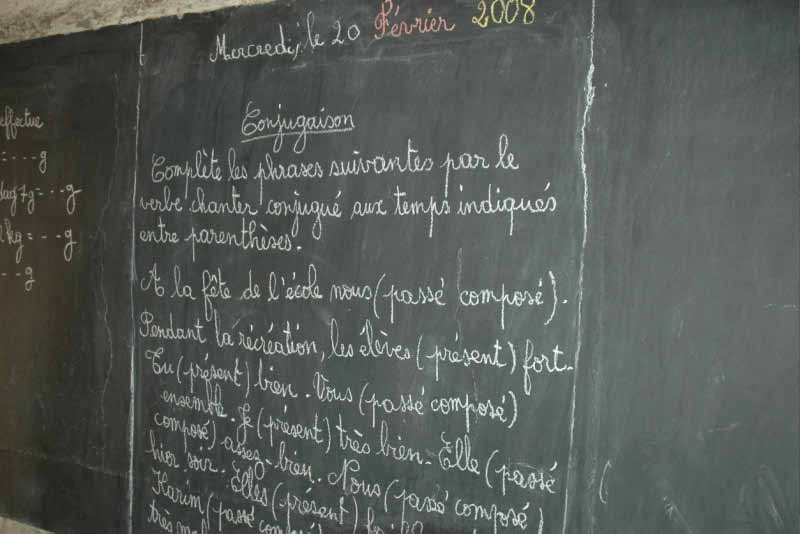 Mercredi, le 20 Février 2008
effectue
= - - - g
dag 7g = - - g
kg = - - g
- - g
Conjugaison
Complète les phrases suivantes par le
verbe chanter conjugué aux temps indiqués
entre parenthèses.
A la fête de l'école nous (passé composé).
Pendant la récréation, les élèves (présent) fort.
Tu (présent) bien. Vous (passé composé)
ensemble. Je (présent) très bien. Elle (passé
composé) assez bien. Nous (passé composé)
hier soir. Elles (présent)
Karim (passé composé)
très